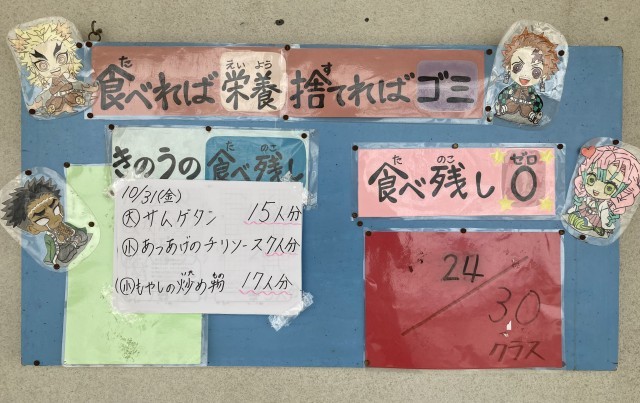 食べれば栄養 捨てればゴミ
きのうの食べ残し
10/31(金)
(大)サムゲタン 15人分
(小)あつあげのチリソース 7人分
(小)もやしの炒め物 17人分
食べ残し0
24/30
クラス